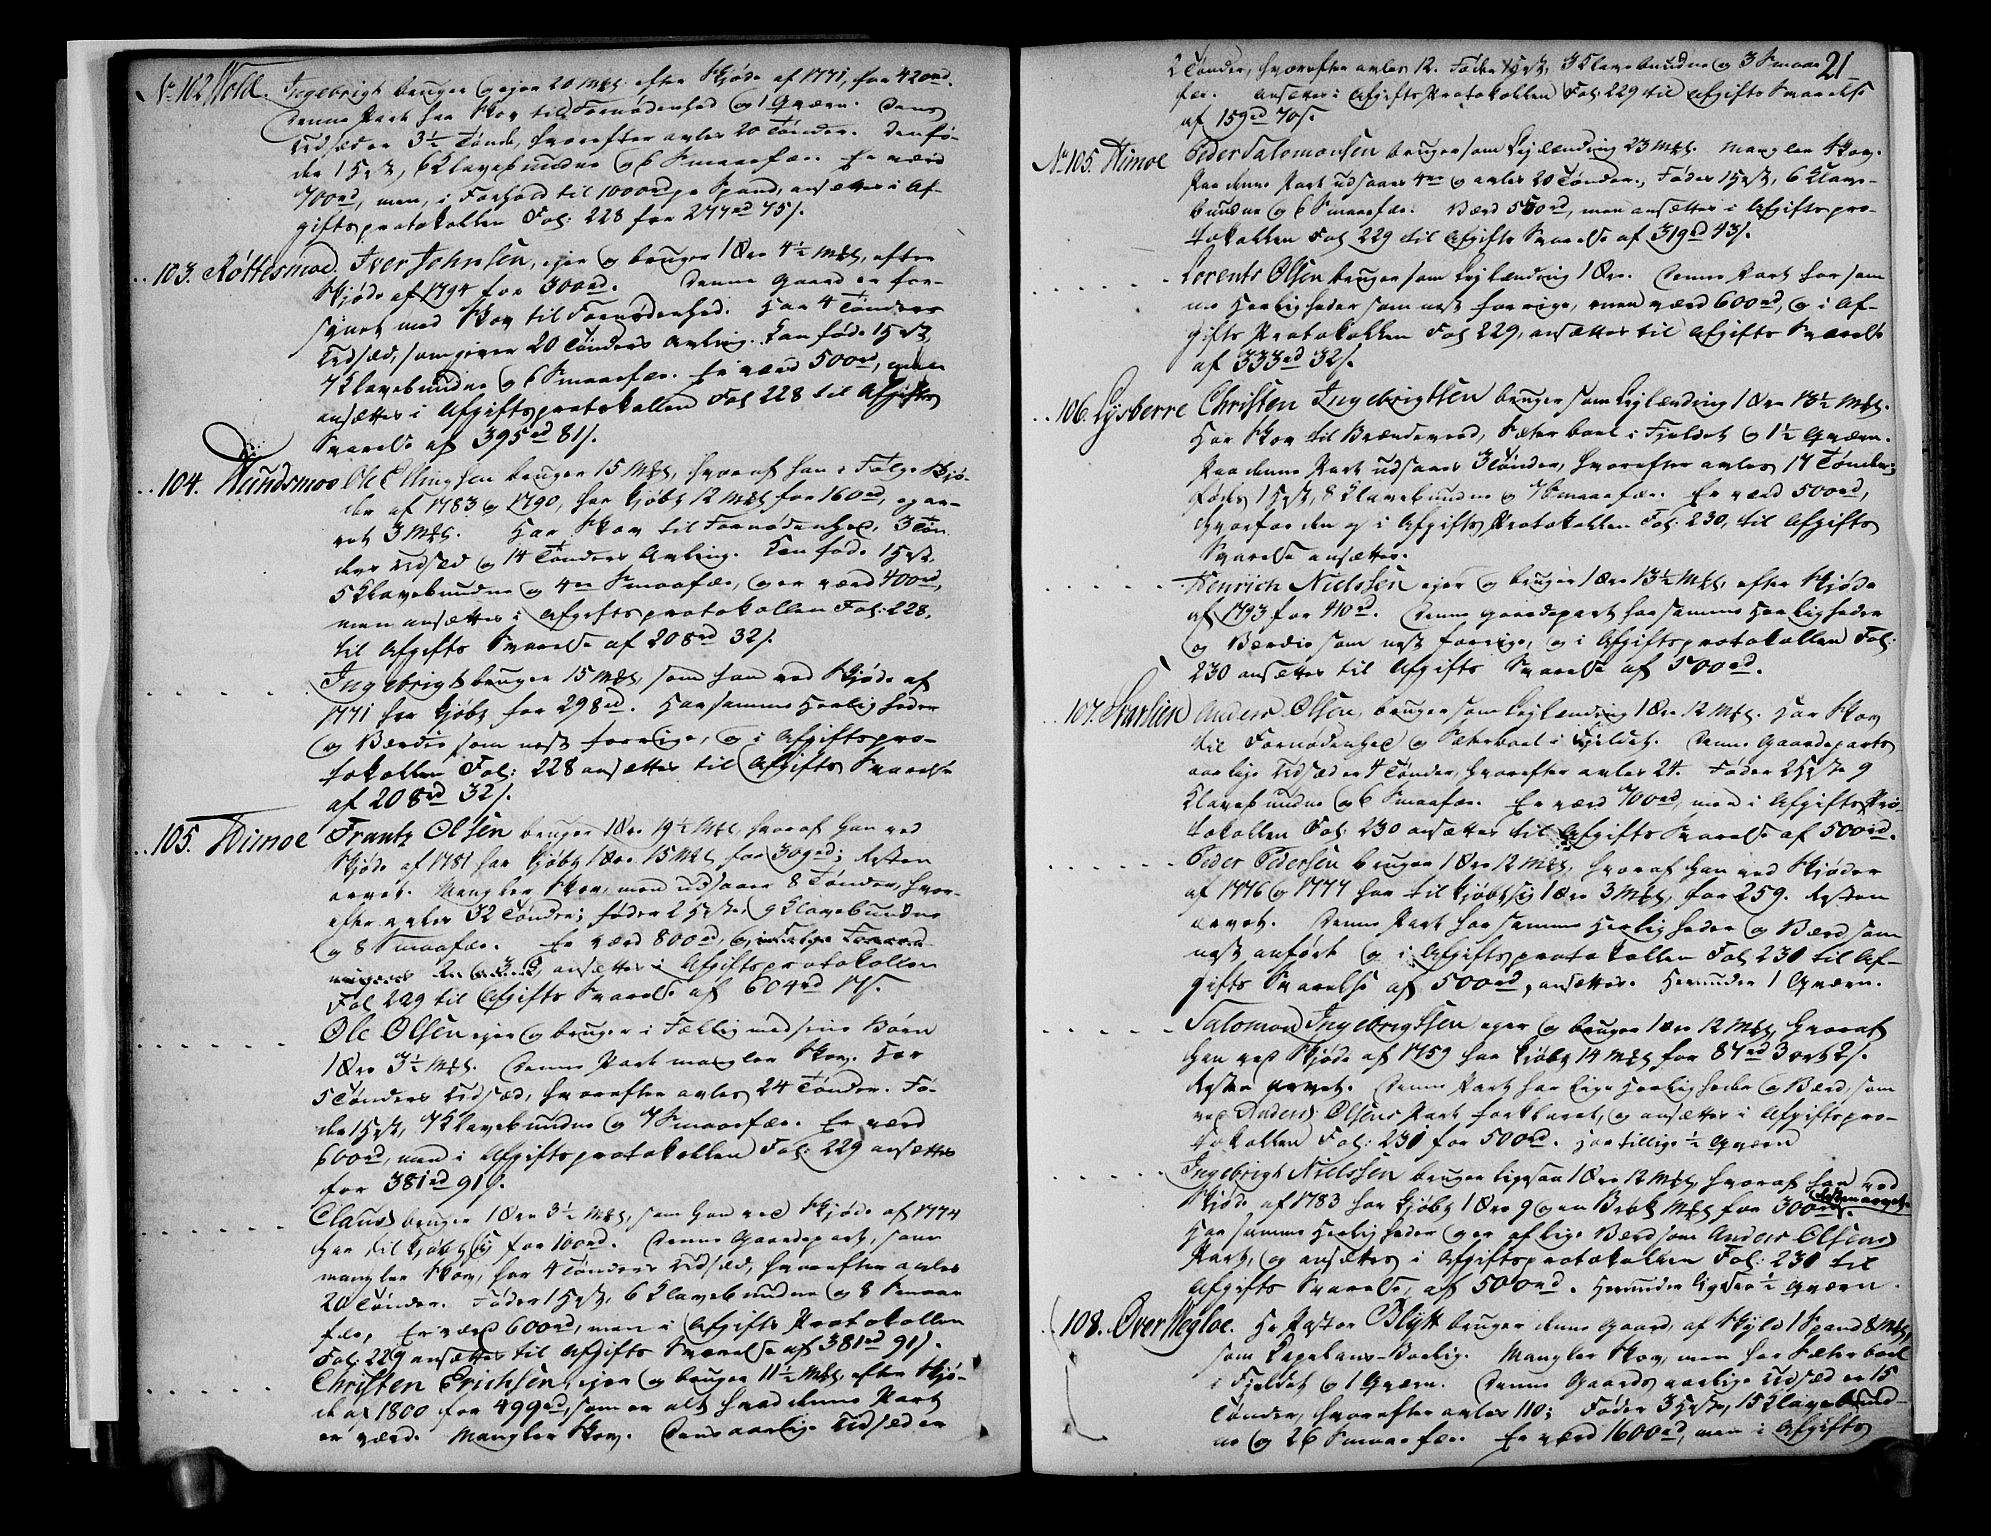 No 102 Vold. Ingebrigt bruger og ejer 20 Mkl. efter Skjøde af 1771, for 420 rd.
Denne Part har Skov til Fornødenhed og 1 Qværn. Dens
Udsæd er 3½ Tønde, hvorefter avles 20 Tønder. Den fø-
der 1 Hest, 6 Klavebundne og 6 Smaafæe. Er værd
700 rd, men, i Forhold til 1000 rd pr Spand, ansættes i Af-
giftsprotokollen Fol: 228 for 277 rd 75 s.
103. Røttesmoe. Iver Johnsen, ejer og bruger 1 Øre 4½ Mkl, efter
Skjøde af 1794 for 300 rd. Denne Gaard er for-
synet med Skov til Fornødenhed. Har 4 Tønders
Udsæd, som giver 20 Tønders Avling. Kan føde 1 Hest,
7 Klavebundne og 6 Smaafæe. Er værd 500 rd, men
ansættes i Afgiftsprotokollen Fol 228 til Afgifts
Svarelse af 395 rd 81 s.
104. Hundsmoe Ole Ellingsen bruger 15 Mkl, hvoraf han i Følge Skjø-
der af 1783 og 1790, har kjøbt 12 Mkl for 160 rd, og ar-
vet 3 Mkl. Har Skov til Fornødenhed, 3 Tøn
ders Udsæd og 14 Tønders Avling. Kan føde 1 Hest,
5 Klavebundne og 4re Smaafæe, og er værd 400 rd,
men ansættes i Afgiftsprotokollen Fol: 228,
til Afgifts Svarelse af 208 rd 32 s.
Ingebrigt bruger 15 Mkl, som han ved Skjøde af
1771 har kjøbt for 298 rd. Har samme Herligheder
og Værdie som nest forrige, og i Afgiftspro-
tokollen Fol: 228 ansættes til Afgifts Svarelse
af 208 rd 32 s.
105. Himoe Frantz Olsen bruger 1 Øre 19½ Mkl hvoraf han ved
Skjøde af 1781 har kjøbt 1 Øre 15 Mkl for 309 rd; Resten
arvet. Mangler Skov, men udsaaer 8 Tønder, hvor-
efter avles 32 Tønder; føder 2 Heste, 9 Klavebundne
og 8 Smaafæe. Er værd 800 rd,
ansættes i Afgiftsprotokollen
Fol 229 til Afgifts Svarelse af 604 rd 17 s.
Ole Olsen ejer og bruger i Fællig med sine Børn
1 Øre 3½ Mkl. Denne Part mangler Skov. Har
5 Tønders Udsæd, hvorefter avles 24 Tønder. Fø-
der 1 Hest, 7 Klavebundne og 7 Smaafæe. Er værd
600 rd, men i Afgiftsprotokollen Fol: 229 ansættes
for 381 rd 91 s.
Claus bruger 1 Øre 3½ Mkl, som han ved Skjøde af 1774
har tilkjøbt sig for 100 rd. Denne Gaardepart, som
mangler Skov, har 4 Tønders Udsæd, hvorefter avles
20 Tønder. Føder 1 Hest, 6 Klavebundne og 8 Smaae
fæe, Er værd 600 rd, men i Afgifts Protokollen
Fol: 229 ansættes til Afgifts Svarelse af 381 rd 91 s.
Christen Erichsen, ejer og bruger 11½ Mkl, efter Skjø-
de af 1800 for 499 rd, som er alt hvad denne Part
er værd. Mangler Skov. Dens aarlige Udsæd er
21
2 Tønder, hvorefter avles 12. Føder 1 Hest, 3 Klavebundne og 3 Smaae
fæe. Ansættes i Afgifts Protokollen Fol: 229 til Afgifts Svarelse
af 159 rd 70 s.
No 105. Himoe Peder Salomonsen bruger som Lejlænding 23 Mkl. Mangler Skov.
Paa denne Part udsaaes 4re og avles 20 Tønder, Føder 1 Hest, 6 Klave-
bundne og 6 Smaafæe. Værd 550 rd, men ansættes i Afgiftspro-
tokollen Fol 229 til Afgifts Svarelse af 319 rd 43 s.
Lorents Olsen bruger som Lejlænding 1 Øre. Denne Part har sam-
me Herligheder som nest forrige, men værd 600 rd, og i Af-
gifts Protokollen Fol 229, ansættes til Afgifts Svarelse
af 333 rd 32 s.
106. Lysberre Christen Ingebrigtsen bruger som Lejlænding 1 Øre 13½ Mkl.
Har Skov til Brændeveed, Sæterboel i Fjeldet og 1½ Qværn.
Paa denne Part udsaaes 3 Tønder, hvorefter avles 17 Tønder;
Føder 1 Hest, 8 Klavebundne og 7 Smaafæe. Er værd 500 rd,
hvorfor den og i Afgifts Protokollen Fol: 230, til Afgifts
Svarelse ansættes.
Henrich Nielssen ejer og bruger 1 Øre 13½ Mkl, efter Skjøde
af 1793 for 410 rd. Denne Gaardepart har samme Herligheder
og Værdie som nest forrige, og i Afgiftsprotokollen Fol:
230 ansættes til Afgifts Svarelse af 500 rd.
107. Anders Olsen, bruger som Lejlænding 1 Øre 12 Mkl. Har Skov
til Fornødenhed og Sæterboel i Fjeldet. Denne Gaardeparts
aarlige Udsæd er 4 Tønder, hvorefter avles 24. Føder 2 Heste 9
Klavebundne og 6 Smaafæe. Er værd 700 rd, men i Afgifts Pro-
tokollen Fol: 230 ansættes til Afgifts Svarelse af 500 rd.
Peder Pedersen bruger 1 Øre 12 Mkl, hvoraf han ved Skjøder
af 1776 og 1777 har tilkjøbt sig 1 Øre 3 Mkl, for 259. Resten
arvet. Denne Part har samme Herligheder og Værd som
nest anført og i Afgiftsprotokollen Fol 230 til Af-
gifts Svarelse af 500 rd, ansættes. Herunder 1 Qværn.
Salomon Ingebrigtsen ejer og bruger 1 Øre 12 Mkl, hvoraf
han ved Skjøde af 1759 har kjøbt 14 Mkl for 87 rd 3 ort 2 s.
Resten arvet. Denne Part har lige Herligheder og Værd, som
ved Anders Olsens Part forklaret, og ansættes i Afgiftspro-
tokollen Fol: 231 for 500 rd. Har tillige ½ Qværn
Ingebrigt Nielssen bruger ligesaa 1 Øre 12 Mkl, hvoraf han ved
Skjøde af 1783 har kjøbt 1 Øre 9 og en Mkl for 300 rd. Resten arvet.
Har samme Herligheder og er af lige Værd som Anders Olsens
Part, og ansættes i Afgiftsprotokollen Fol: 231 til
Afgifts Svarelse, af 500 rd. Herunder ½ Qværn.
108. Øver Hegloe. Hr Pastor Blytt bruger denne Gaard, af Skyld 1 Spand 8 Mkl,
som Capelans-Boelig. Mangler Skov, men har Sæterboel
i Fjeldet og 1 Qværn. Denne Gaards aarlige Udsæd er 15
Tønder, hvorefter avles 110; Føder 3 Heste, 15 Klavebund-
ne og 26 Smaafæe. Er værd 1600 rd, men i Afgifts